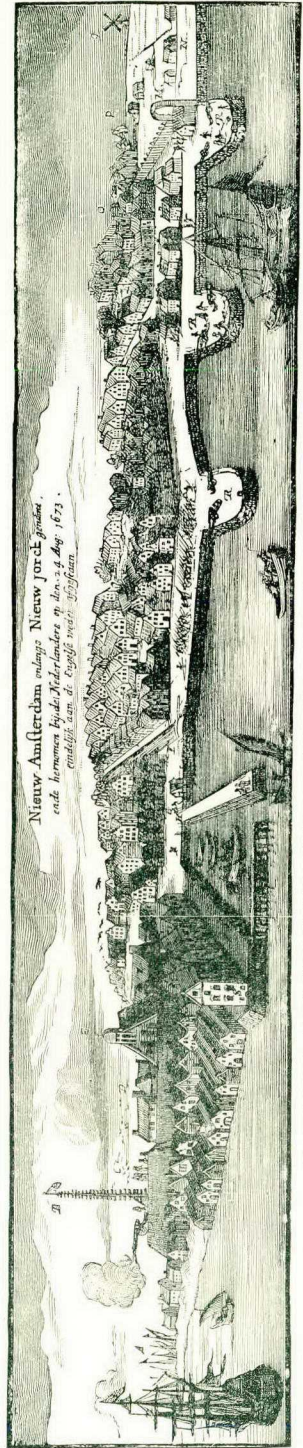 Nieuw Amsterdam onlangs Nieuw jorck genaemt,
ende hernomen bij de Nederlanders op den 24 Aug. 1673.
eindelijk aan de Engelse weder afgestaan